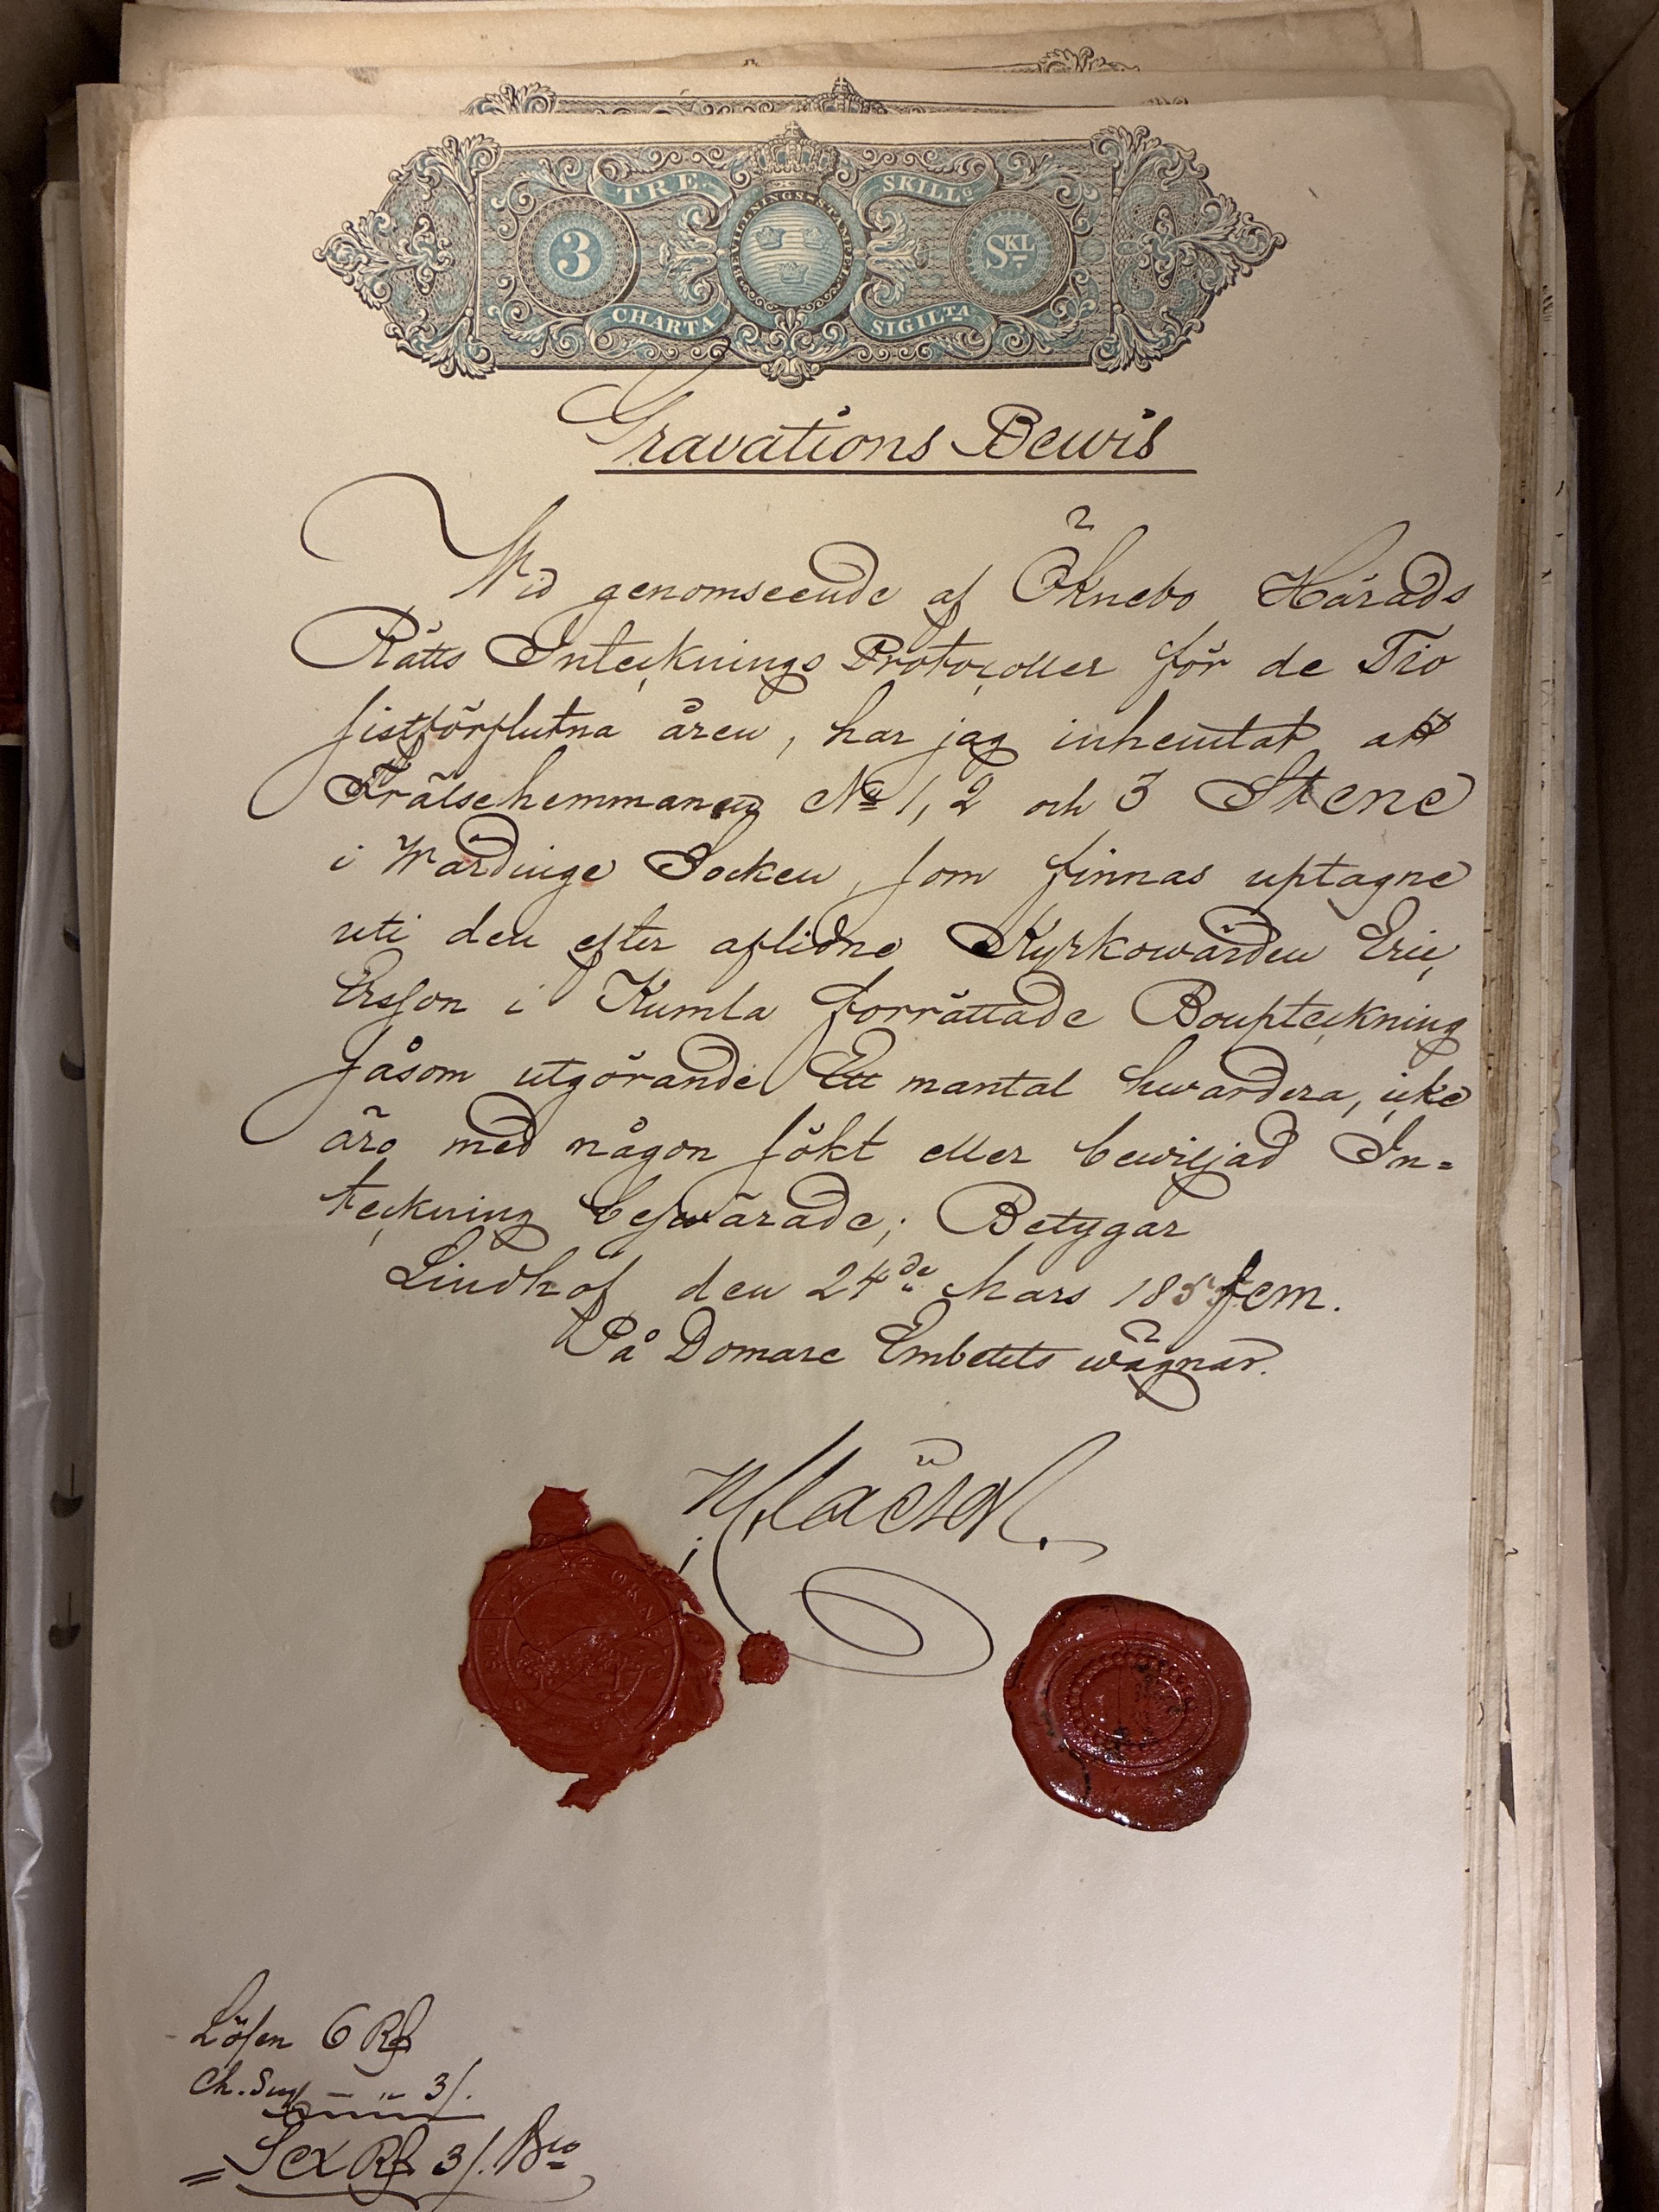 TRE SKILLG
BEVILLNINGS-STÄMPEL
3 SKL
CHARTA SIGILTA
Gravations Bewis
Wid genomseende af Öknebo Härads
Rätts Intecknings Protocoller för de Tio
sistförflutna åren, har jag inhemtat att
Frälsehemmanen No 1, 2 och 3 Stene
i Wårdinge Socken, som finnas uptagne
uti den efter aflidne Kyrkowärden Eric
Ersson i Kumla förrättade Bouptekning
såsom utgörande Ett mantal hwardera, icke
äro med någon sökt eller bewiljad In=
teckning beswärade; Betygar
Lindhof den 24de Mars 185fem.
På Domare Embetets wägnar.
Lösen 6 Rd
Ch. Sig - " 3 s.
= Sex Rd 3 s. Bco